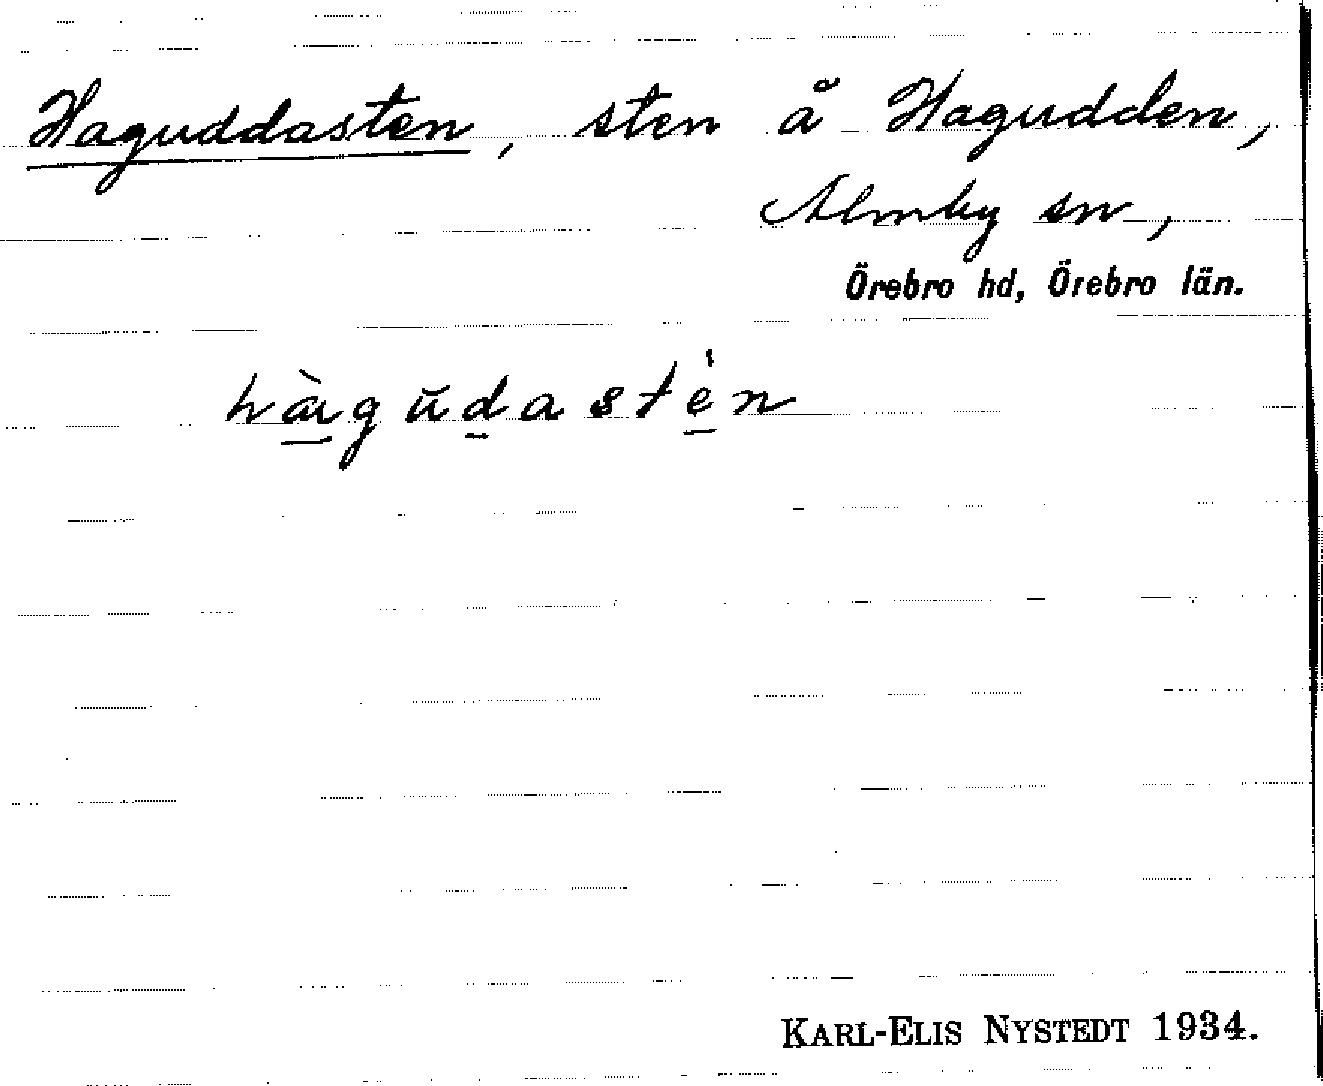 Haguddasten, sten å Hagudden,
Almby sn,
Örebro hd, Örebro län.
hàgŭdastén
KARL-ELIS NYSTEDT 1934.